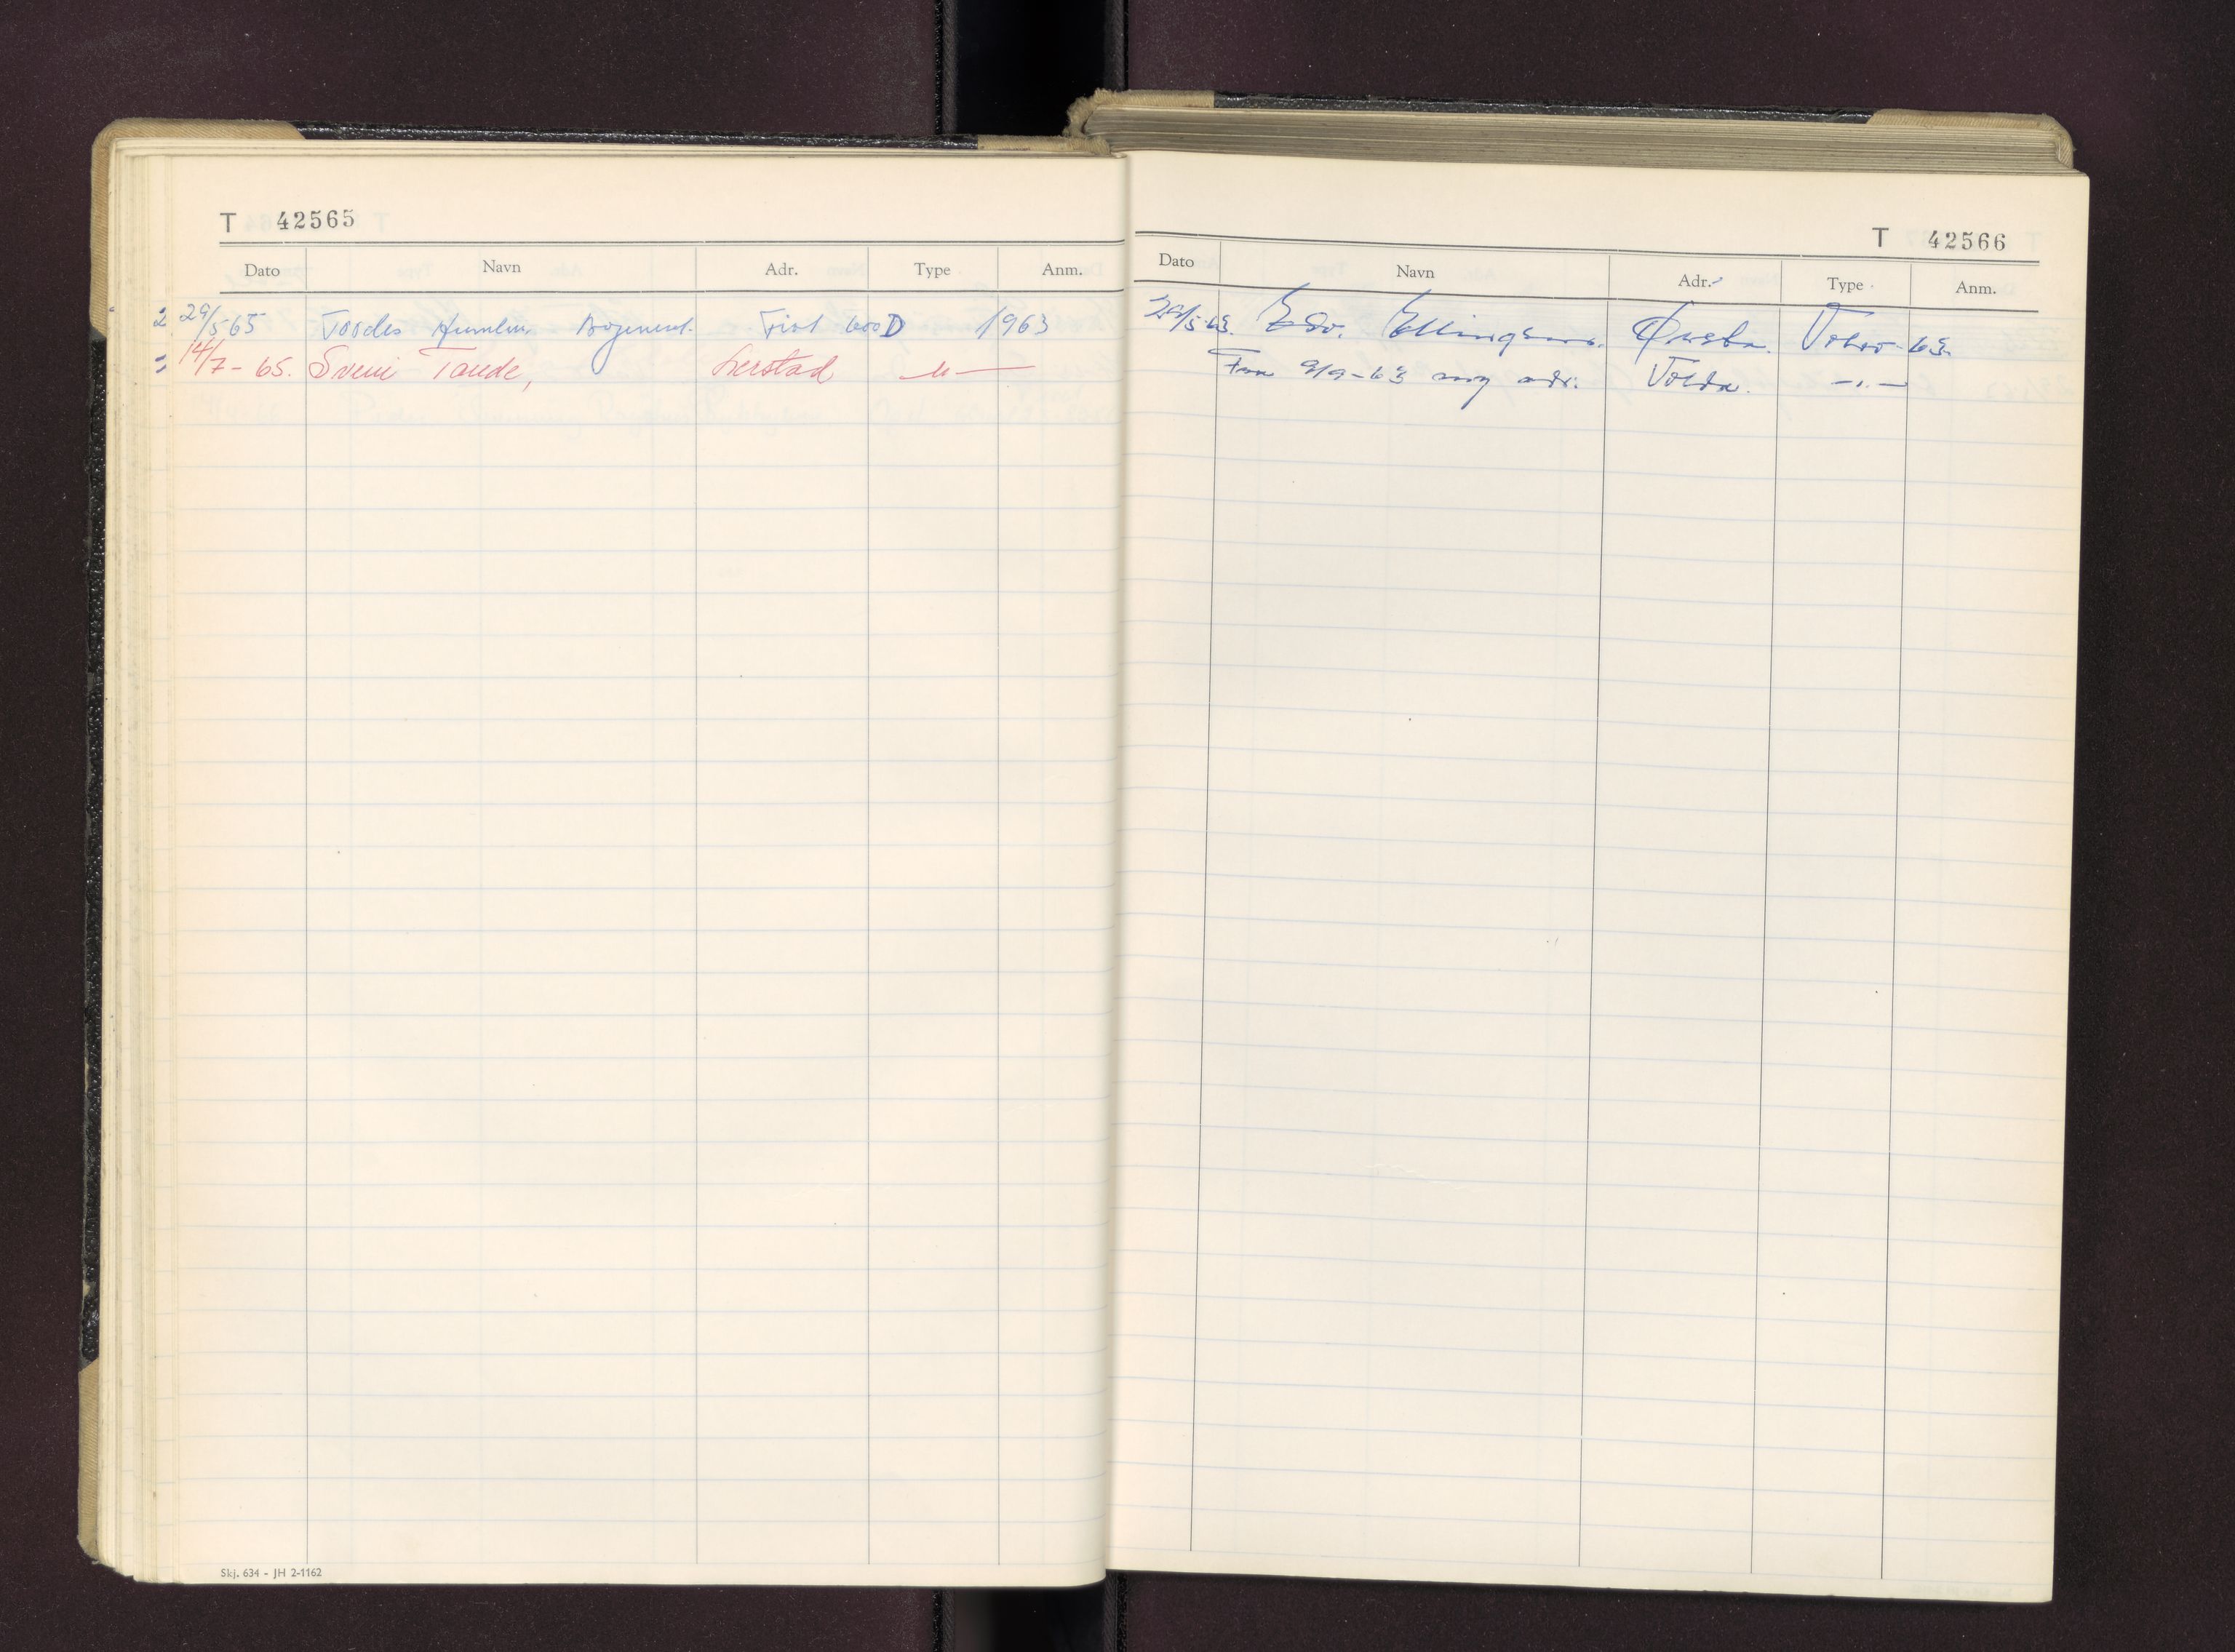 T 42565
Dato Navn Adr. Type Anm.
2 29/5 65 Fiat 600 D 1963
14/7 - 65. Svein Tande, Lerstad — " —
Skj. 634 - JH 2-1162
T 42566
Dato Navn Adr. Type Anm.
29/5-63. Edv. Ellingsen. Ørsta. Volvo - 63.
Fra 9/9-63 ny adr. Volda. — " —